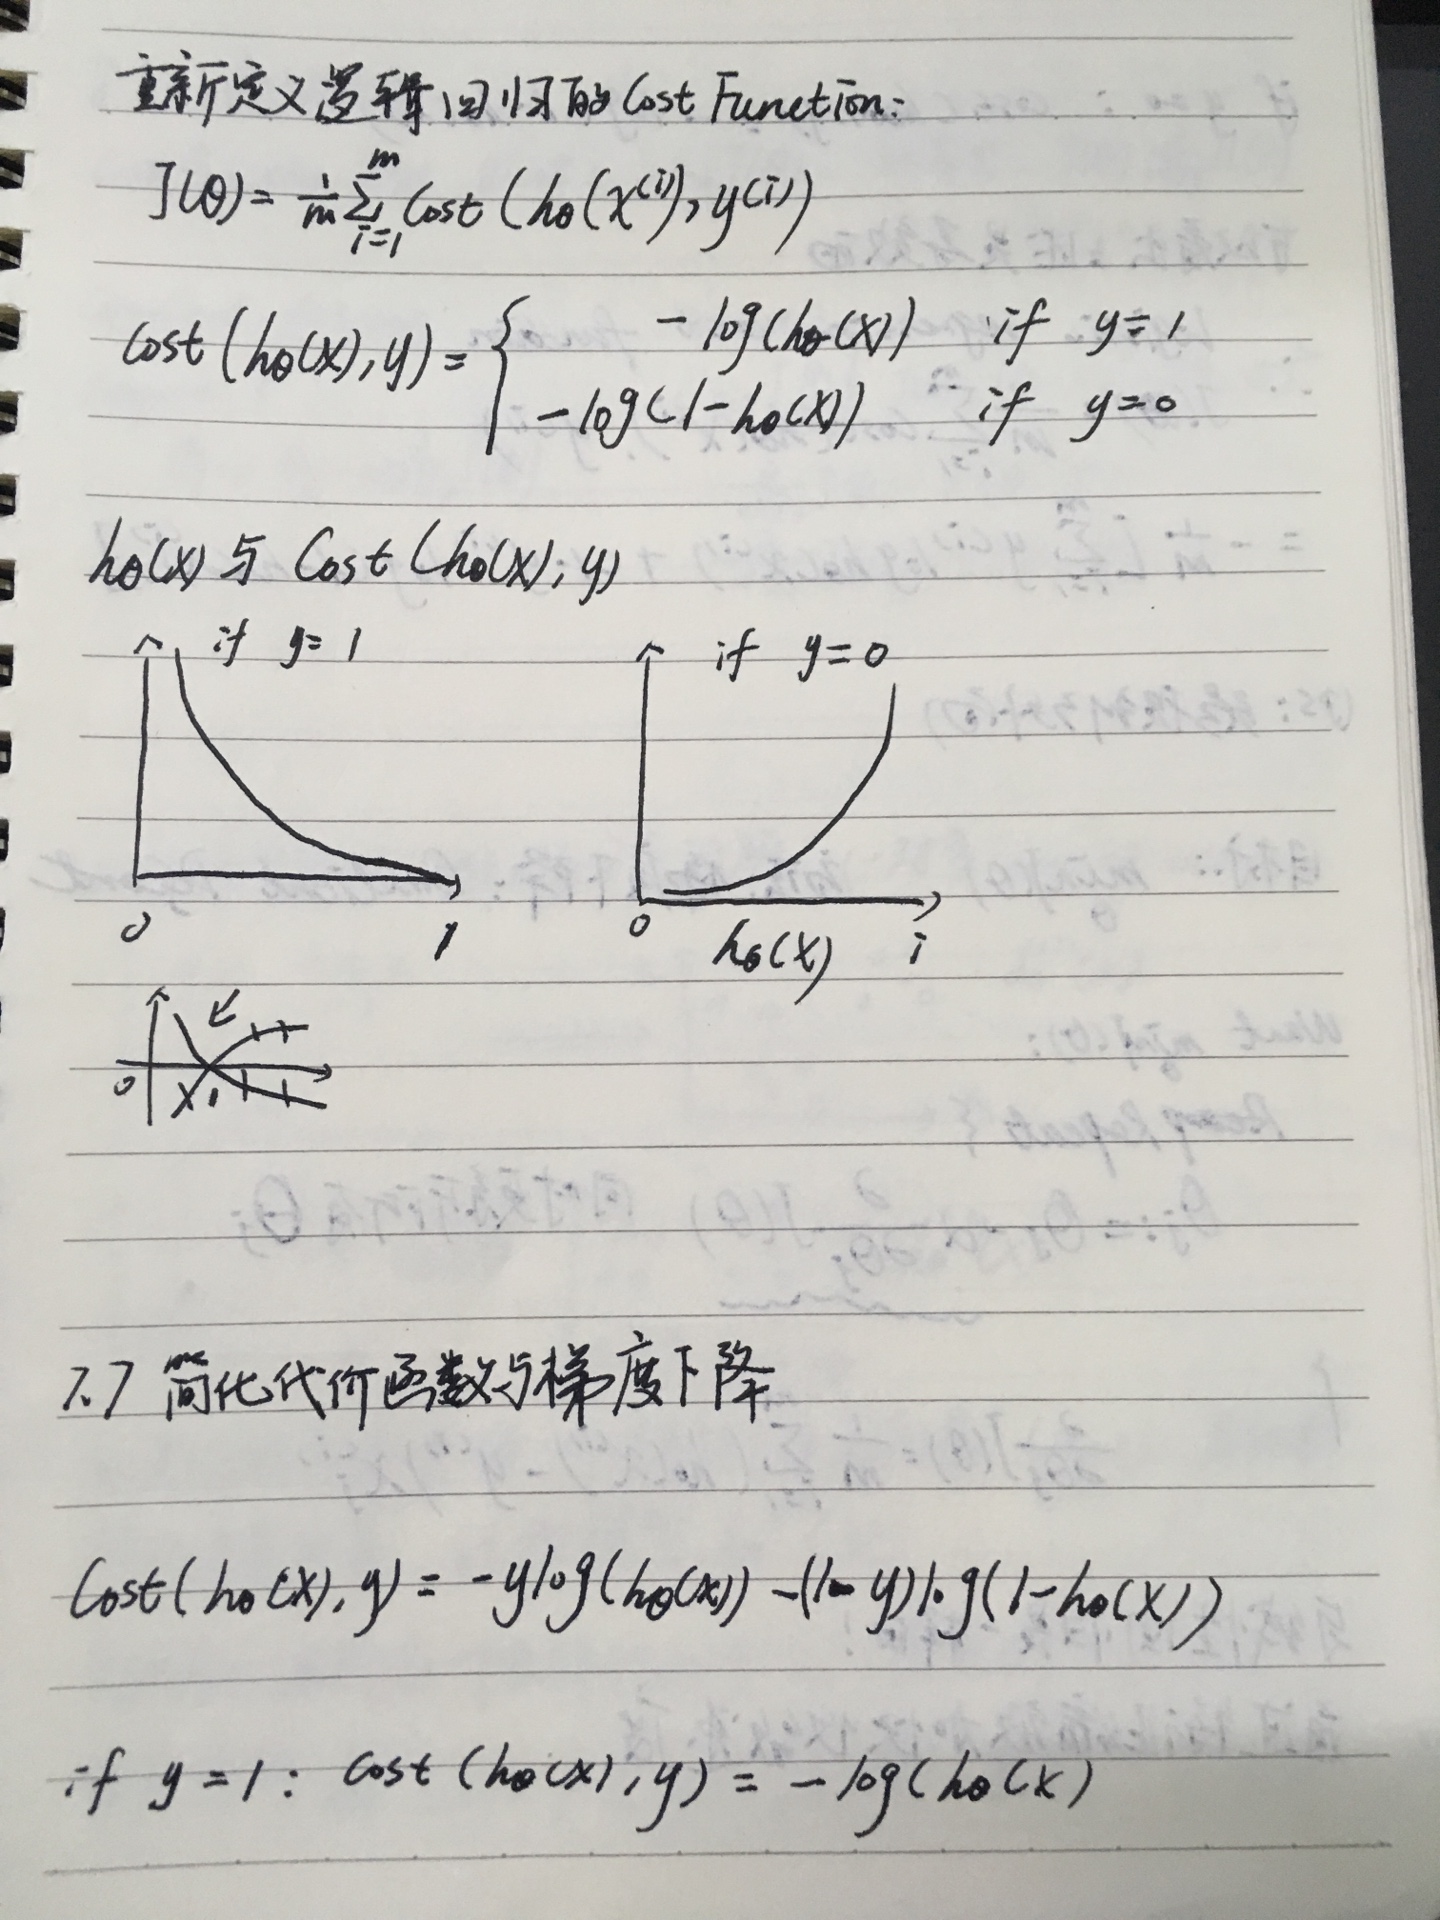 重新定义逻辑回归的Cost Function:
J(θ) = 1/m Σ_{i=1}^{m} Cost(hθ(x^(i)), y^(i))
Cost(hθ(x), y) = { -log(hθ(x)) if y=1
-log(1-hθ(x)) if y=0
hθ(x) 与 Cost(hθ(x), y)
if y=1 if y=0
0 1 0 hθ(x) i
0 1
7.7 简化代价函数与梯度下降
Cost(hθ(x), y) = -ylog(hθ(x)) -(1-y)log(1-hθ(x))
if y=1: Cost(hθ(x), y) = -log(hθ(x)